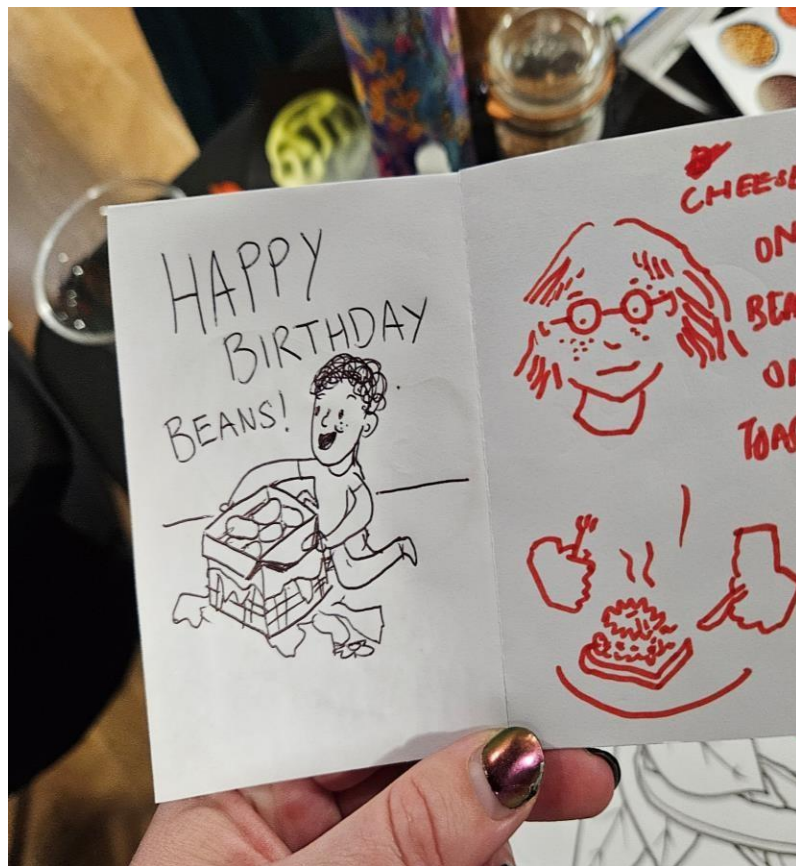 HAPPY
BIRTHDAY
BEANS!
CHEESE
ON
BEA
ON
TOAS